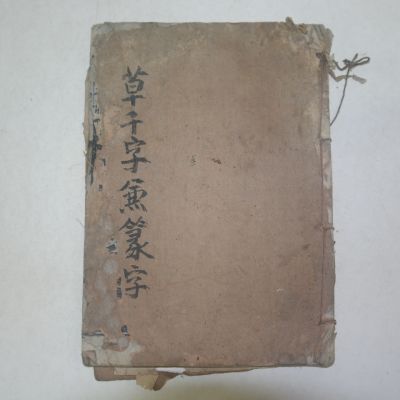 草千字兼篆字